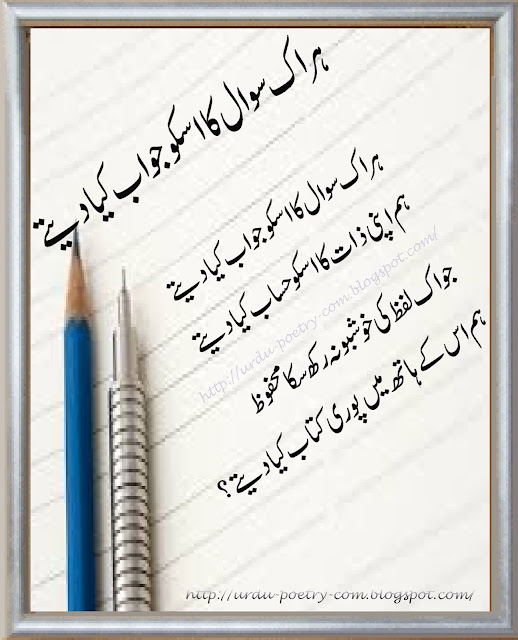 ہر اک سوال کا اسکو جواب کیا دیتے
ہر اک سوال کا اسکو جواب کیا دیتے
ہم اپنی ذات کا اسکو حساب کیا دیتے
http://urdu-poetry-com.blogspot.com/
جو اک لفظ کی خوشبو نہ رکھ سکا محفوظ
ہم اس کے ہاتھ میں پوری کتاب کیا دیتے؟
http://urdu-poetry-com.blogspot.com/